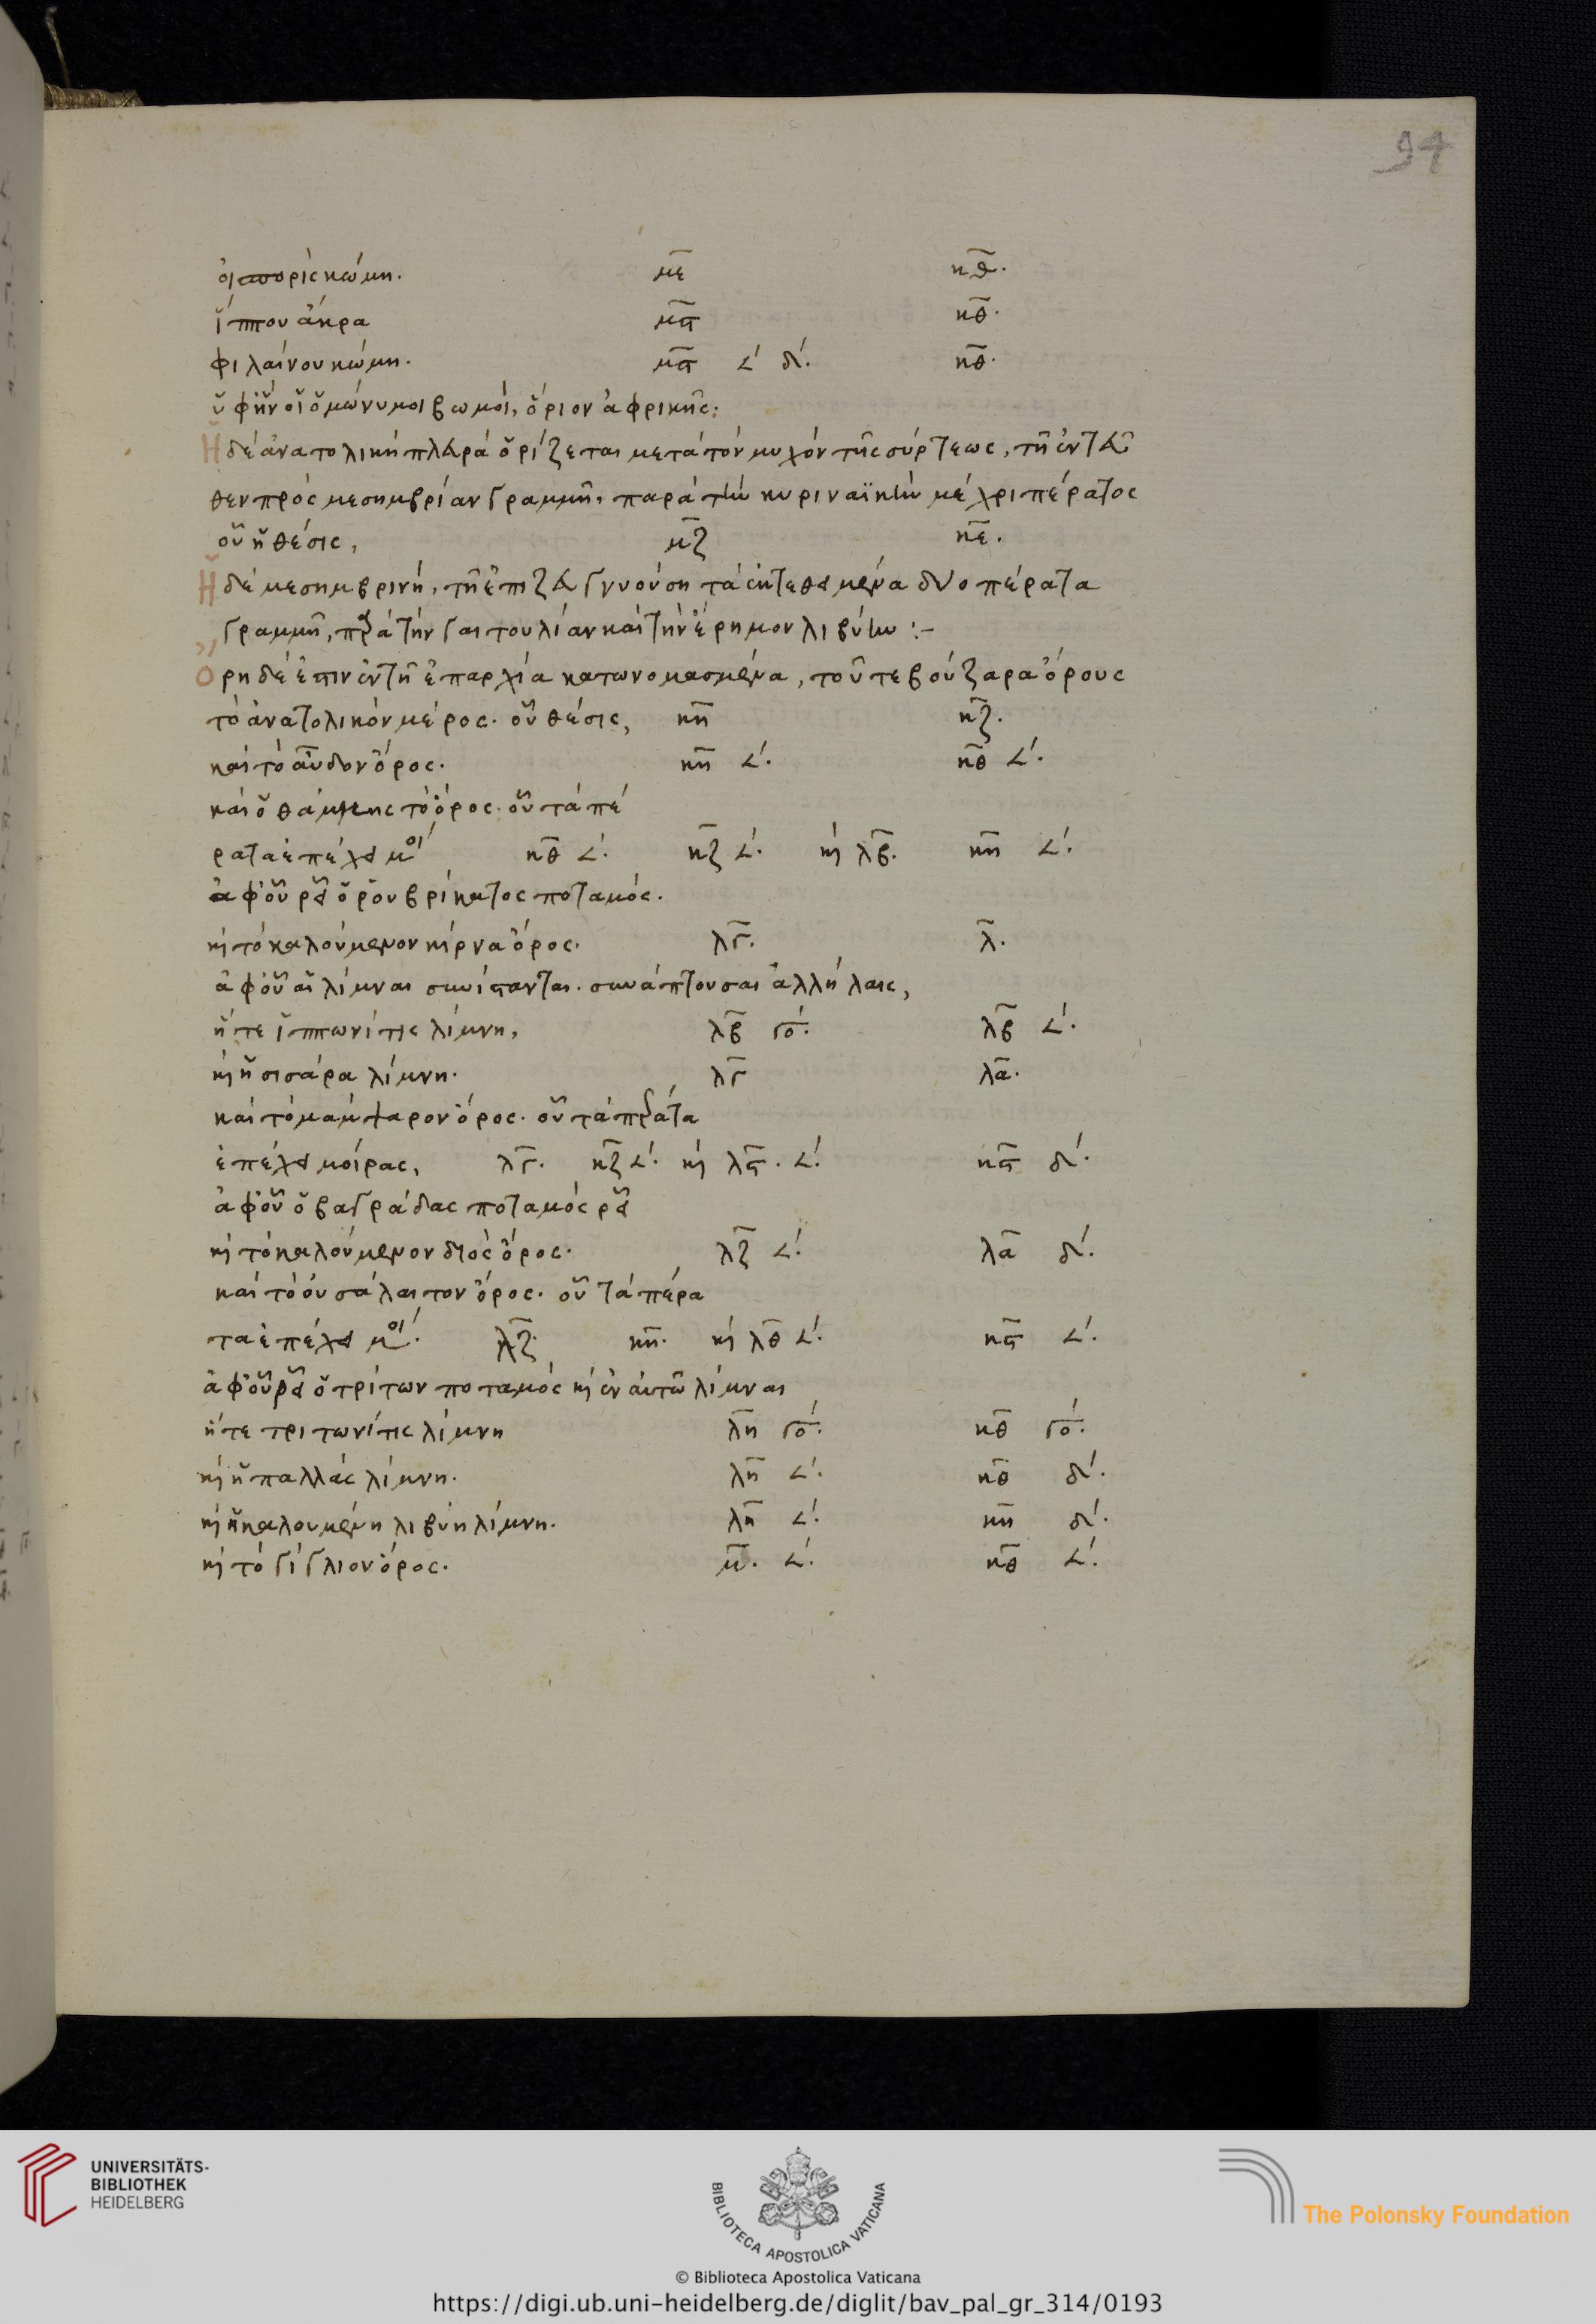 94
οἰσπορὶς κώμη. με̅ κθ̅.
ἵππου ἄκρα μϛ̅ κθ̅.
φιλαίνου κώμη. μϛ̅ ∠´ δ´. κθ̅.
ὑφ' ἣν οἱ ὁμώνυμοι βωμοί, ὅριον ἀφρικῆς:
Ἡ δὲ ἀνατολικὴ πλευρὰ ὁρίζεται μετὰ τὸν μυχὸν τῆς σύρτεως, τῇ ἐντεῦ
θεν πρὸς μεσημβρίαν γραμμῇ, παρὰ τὴν κυριναϊκὴν μέχρι πέρατος
οὗ ἡ θέσις, μζ̅ κε̅.
Ἡ δὲ μεσημβρινὴ, τῇ ἐπιζευγνυούσῃ τὰ ἐκτεθειμένα δύο πέρατα
γραμμῇ, παρὰ τὴν γαιτουλίαν καὶ τὴν ἔρημον λιβύην :-
Ὄρη δέ ἐστιν ἐν τῇ ἐπαρχίᾳ κατωνομασμένα, τοῦ τε βούζαρα ὄρους
τὸ ἀνατολικὸν μέρος. οὗ θέσις, κη̅ κζ̅.
καὶ τὸ αὖδον ὄρος. κη̅ ∠´. κθ̅ ∠´.
καὶ ὁ θάμμης τὸ ὄρος. οὗ τὰ πέ
ρατα ἐπέχει μοί κθ̅ ∠´. κζ̅ ∠´. κ(αὶ) λβ̅. κη̅ ∠´.
ἀφ' οὗ ῥεῖ ὁ ῥουβρίκατος ποταμός.
κ(αὶ) τὸ καλούμενον κίρνα ὄρος. λγ̅. λ̅.
ἀφ' οὗ αἱ λίμναι συνίστανται. συνάπτουσαι ἀλλήλαις,
ἥ τε ἱππωνίτις λίμνη, λβ̅ γο´. λβ̅ ∠´.
κ(αὶ) ἡ σισάρα λίμνη. λγ̅ λα̅.
καὶ τὸ μάμψαρον ὄρος. οὗ τὰ πέρατα
ἐπέχει μοίρας, λγ̅. κζ̅ ∠´. κ(αὶ) λϛ̅. ∠´. κϛ̅ δ´.
ἀφ' οὗ ὁ βαγράδας ποταμὸς ῥεῖ
κ(αὶ) τὸ καλούμενον διὸς ὄρος. λζ̅ ∠´. λα̅ δ´.
καὶ τὸ οὐσάλαιτον ὄρος. οὗ τὰ πέρα
τα ἐπέχει μοί. λζ̅. κη̅. κ(αὶ) λθ̅ ∠´. κϛ̅ ∠´.
ἀφ' οὗ ῥεῖ ὁ τρίτων ποταμὸς κ(αὶ) ἐν αὐτῷ λίμναι
ἥ τε τριτωνίτις λίμνη λη̅ γο´. κθ̅ γο´.
κ(αὶ) ἡ παλλὰς λίμνη. λη̅ ∠´. κθ̅ δ´.
κ(αὶ) ἡ καλουμένη λιβύη λίμνη. λη̅ ∠´. κη̅ δ´.
κ(αὶ) τὸ γίγλιον ὄρος. μ̅. ∠´. κθ̅ ∠´.
UNIVERSITÄTS-
BIBLIOTHEK
HEIDELBERG
BIBLIOTECA APOSTOLICA VATICANA
The Polonsky Foundation
© Biblioteca Apostolica Vaticana
https://digi.ub.uni-heidelberg.de/diglit/bav_pal_gr_314/0193